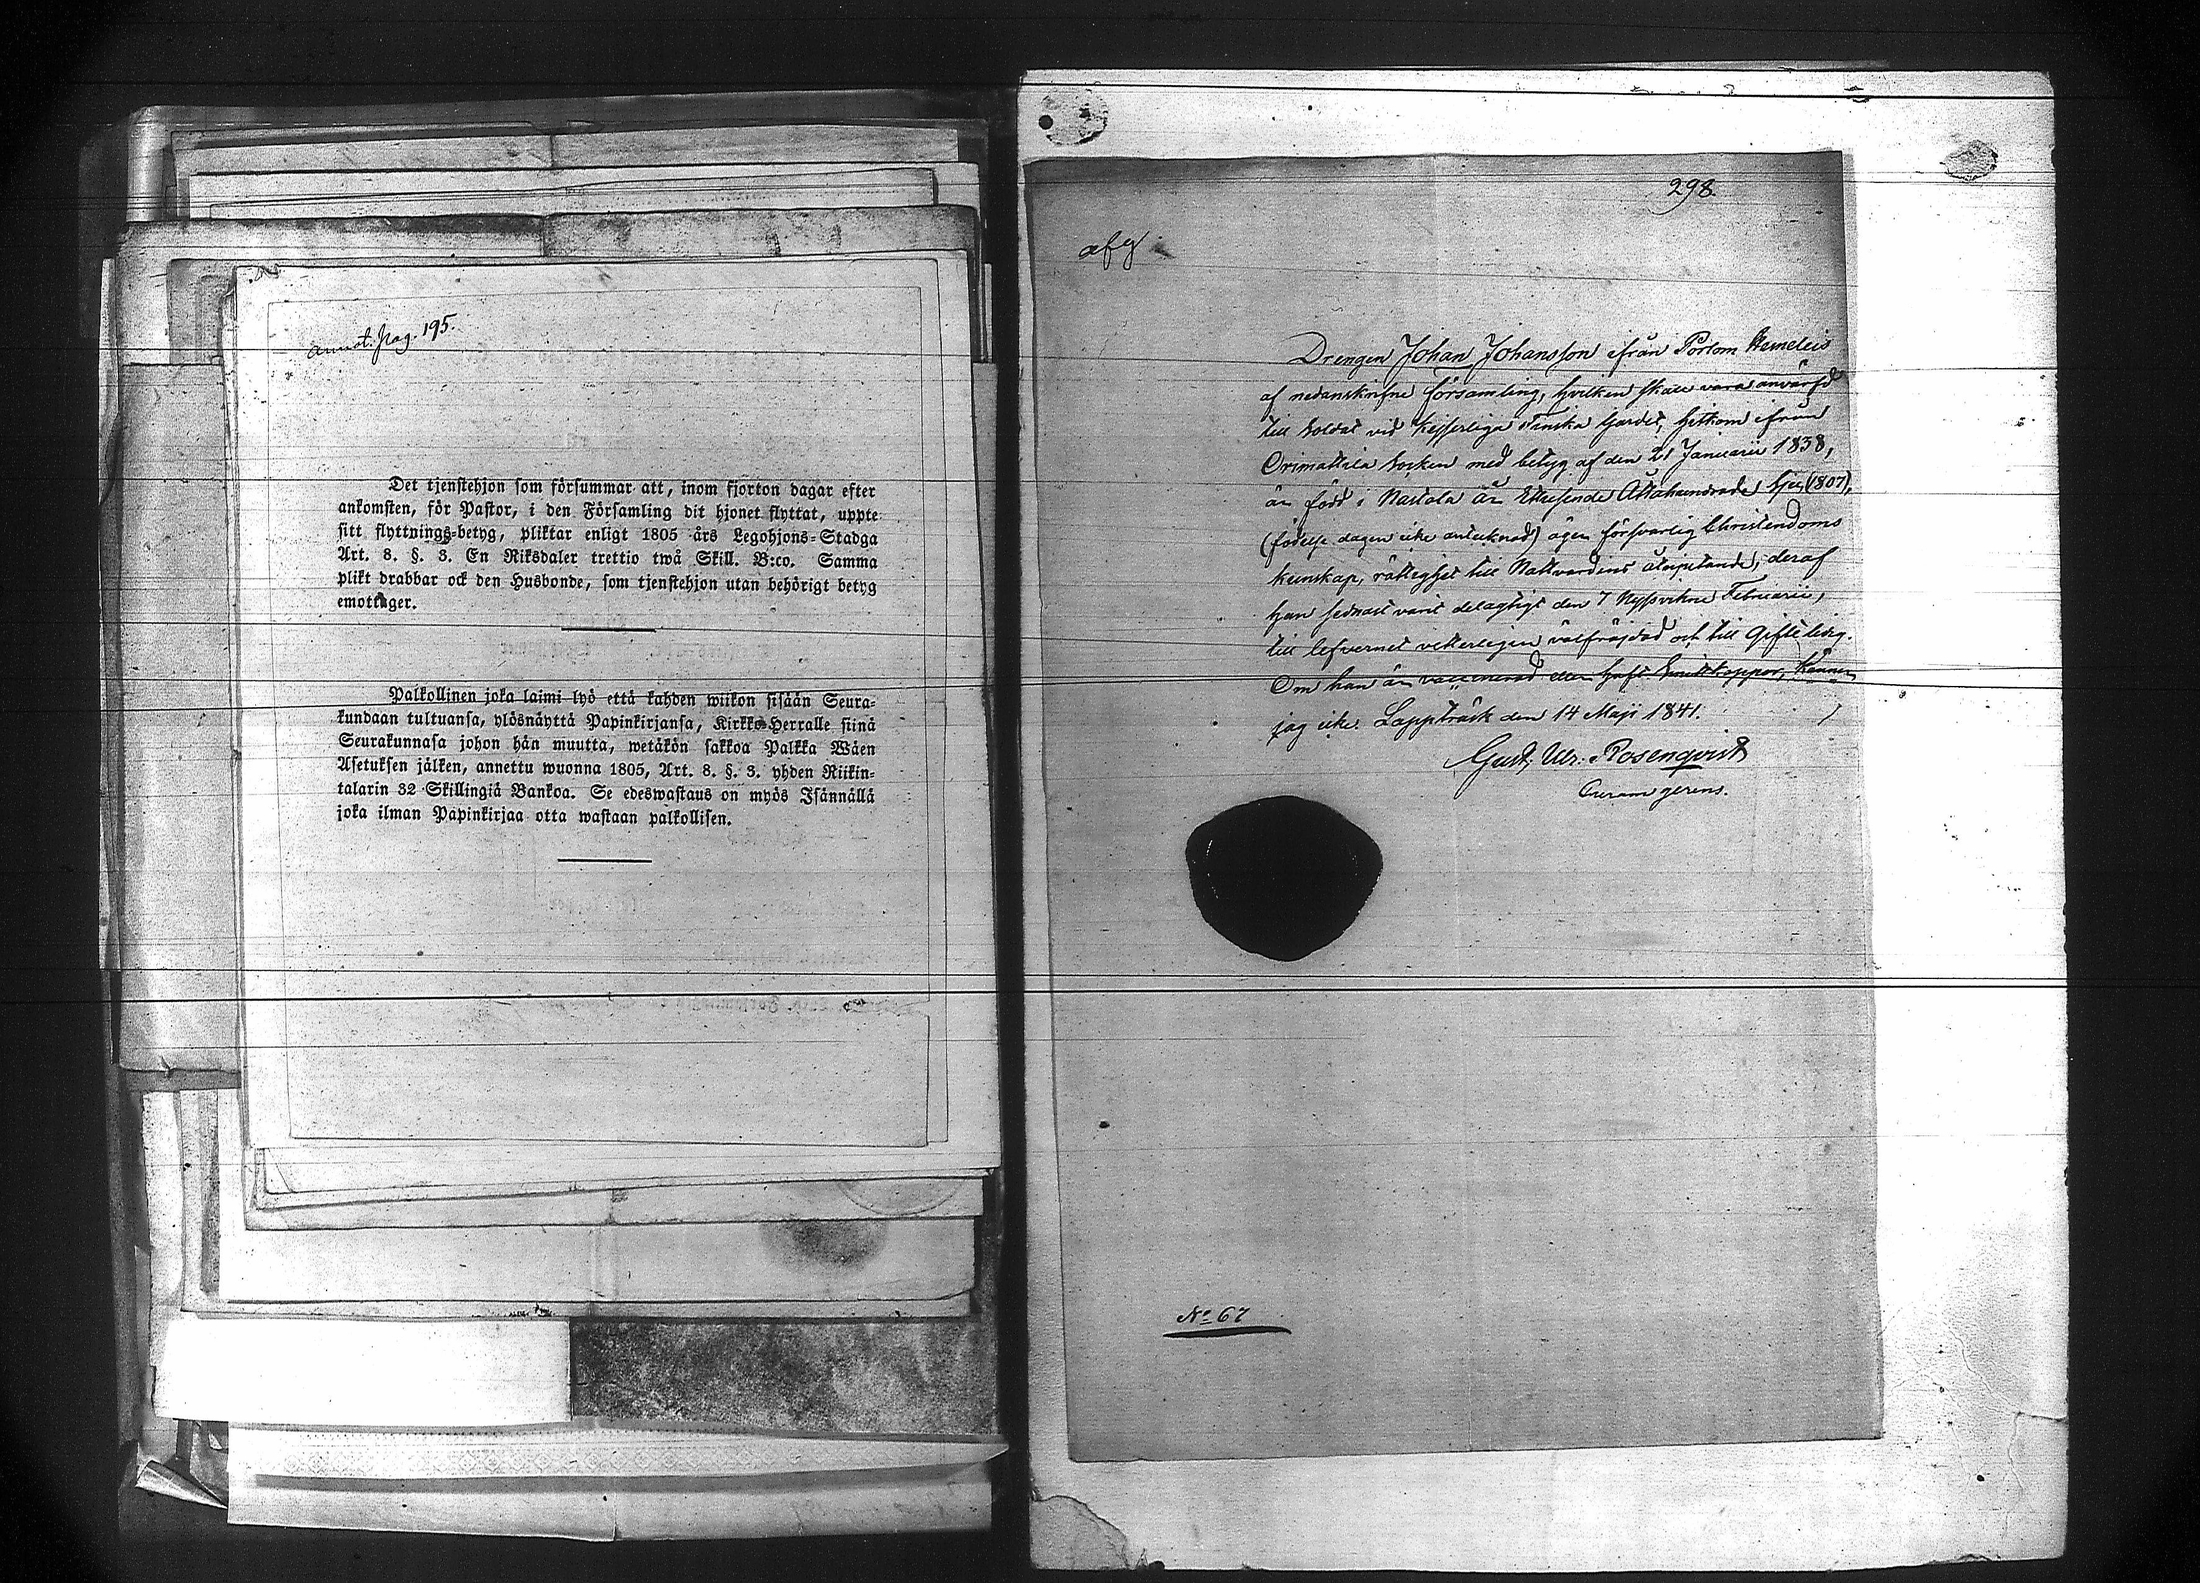 annot. pag. 195.
Det tjenstehjon som försummar att, inom fjorton dagar efter
ankomsten, för Pastor, i den Församling dit hjonet flyttat, uppte
sitt flyttnings-betyg, pliktar enligt 1805 års Legohjons-Stadga
Art. 8. §. 3. En Riksdaler trettio twå Skill. B:co. Samma
plikt drabbar ock den Husbonde, som tjenstehjon utan behörigt betyg
emottager.
Palkollinen joka laimi-lyö että kahden wiikon sisään Seura-
kundaan tultuansa, ylösnäyttä Papinkirjansa, Kirkko-Herralle siinä
Seurakunnasa johon hän muutta, wetäkön sakkoa Palkka Wäen
Asetuksen jälken, annettu wuonna 1805, Art. 8. §. 3. yhden Riikin-
talarin 32 Skillingiä Bankoa. Se edeswastaus on myös Isännällä
joka ilman Papinkirjaa otta wastaan palkollisen.
298.
afg
Drengen Johan Johansson ifrån Porlom
af nedanskrifne församling, hvilken skall vara anvärfd
till Soldat vid Kejserliga Finska Gardet, hitkom ifrån
Orimattila Socken med betyg af den 21 Januarii 1838,
är född i Nastola år Ettusende Åttahundrade Sju (1807),
(födelse dagen icke antecknad) äger försvarlig Christendoms
kunskap, rättighet till Nattvardens åtnjutande, deraf
han sednast varit delagtigt den 7 Februarii,
till lefvernet vitterligen välfräjdad och till Gifte ledig.
Om han är vaccinerad eller haft Smittkoppor, känner
jag icke. Lappträsk den 14 Maji 1841.
Gust. Ulr. Rosenqvist
Curam gerens.
No 67